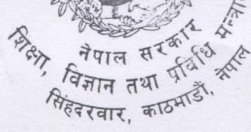 नेपाल सरकार
शिक्षा, विज्ञान तथा प्रविधि
सिंहदरवार, काठमाडौं, नेपाल